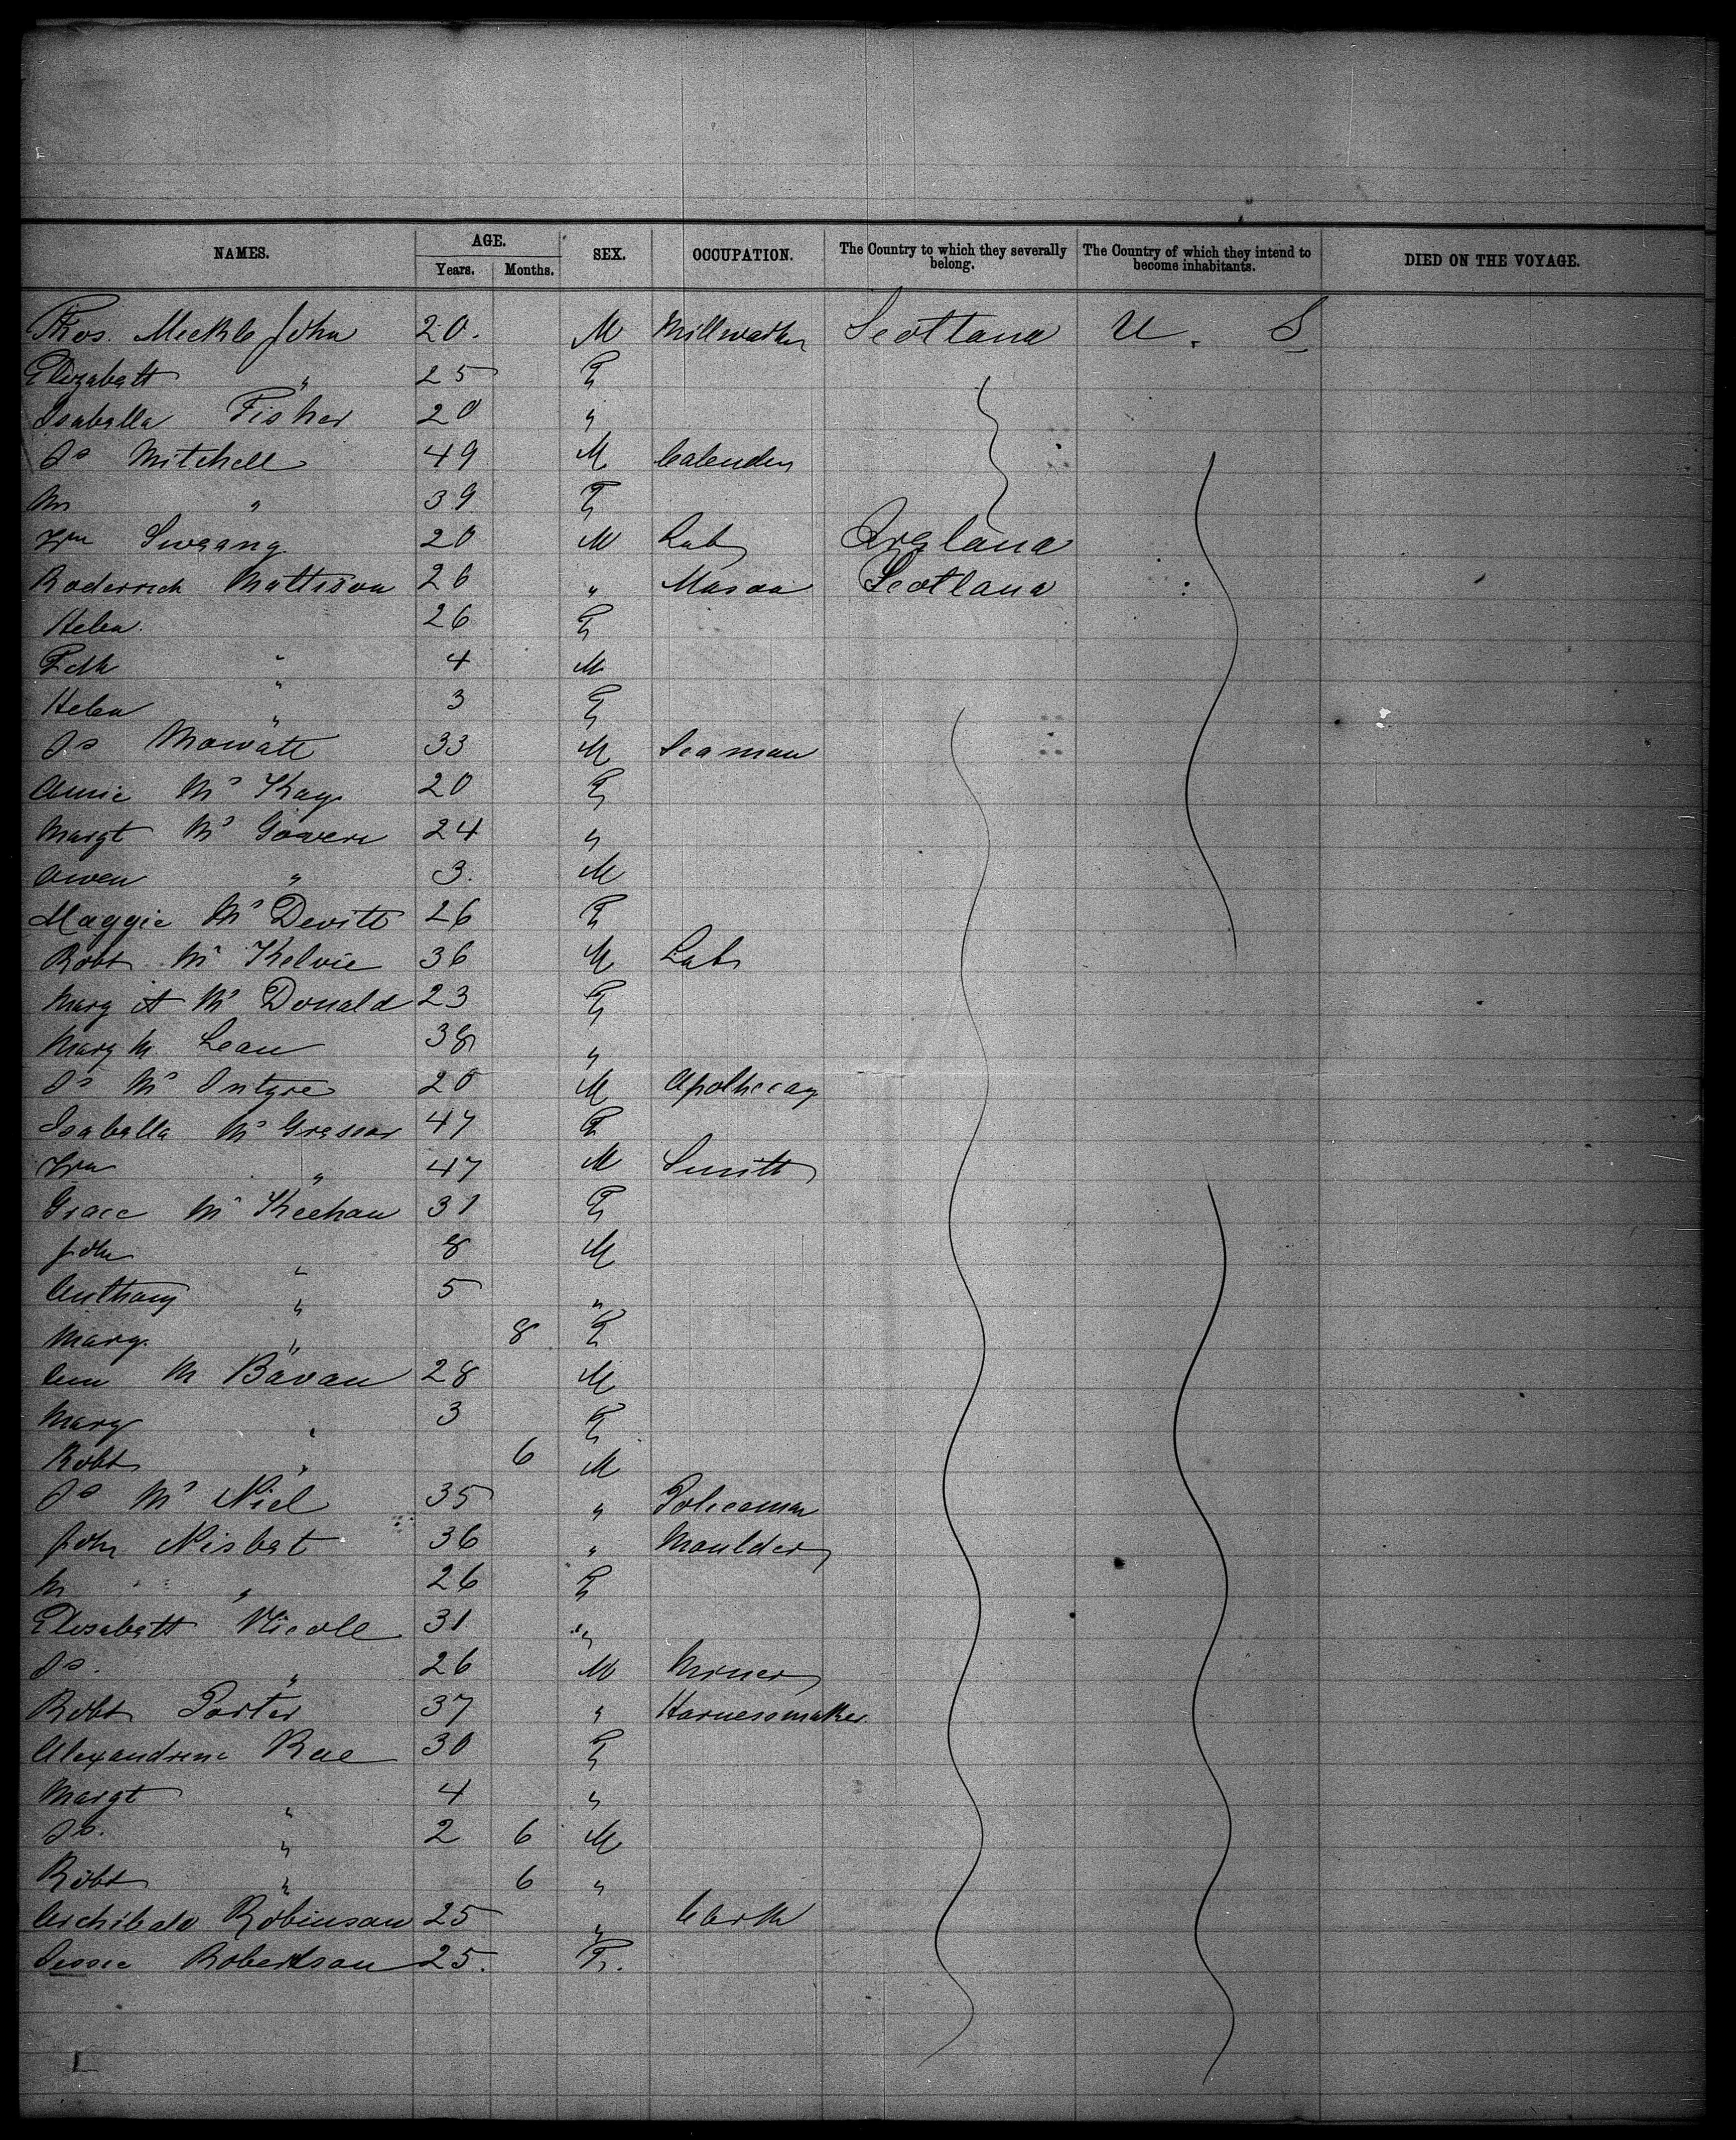 NAMES. AGE. SEX. OCCUPATION. The Country to which they severally belong. The Country of which they intend to become inhabitants. DIED ON THE VOYAGE.
Years. Months.
Thos. Meckle John 20. M Scotland U. S
Elizabeth " 25 F
Isabella Fisher 20 "
Js Mitchell 49 M Calender
" 39 F
Wm 20 M Lab Ireland
Roderrick Mattison 26 " Mason Scotland
Helen 26 F
" 4 M
Helen " 3 F
Js Mowatt 33 M Seaman
Annie Mc Kay 20 F
Margt Mc Govern 24 "
Owen " 3. M
Maggie Mc Devitt 26 F
Robt Mc Kelvie 36 M Lab
Mary A Mc Donald 23 F
Mary M Lean 38 "
Js Mc Intyre 20 M Apothecay
Isabella Mc Gressor 47 F
Wm " 47 M Smith
Grace Mc Keehan 31 F
John " 8 M
Anthony " 5 "
Mary " 8 F
Ann M Bavan 28 M
Mary " 3 F
Robt " 6 M
Js Mc Niel 35 " Policeman
John Nisbet 36 " Moulder
M " 26 F
Elisabeth Nicoll 31 "
Js. " 26 M Miner
Robt Porter 37 " Harnessmaker.
Alexandrine Rae 30 F
Margt " 4 "
Js. " 2 6 M
Robt " 6 "
Archibald Robinson 25 " Clerk
Jessie Robertson 25. F.